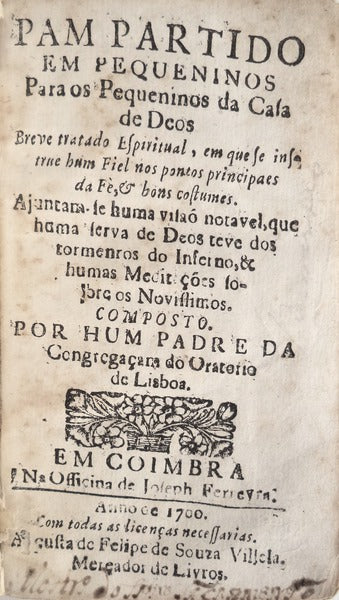 PAM PARTIDO
EM PEQUENINOS
Para os Pequeninos da Caſa
de Deos
Breve tratado Eſpiritual, em que ſe inſ-
true hum Fiel nos pontos principaes
da Fè, & bons coſtumes.
Ajuntam-ſe huma viſaõ notavel, que
huma ſerva de Deos teve dos
tormenros do Inferno, &
humas Medit ções ſo-
bre os Noviſſimos.
COMPOSTO.
POR HUM PADRE DA
Congregaçam do Oratorio
de Lisboa.
EM COIMBRA
Na Officina de Joseph Ferreyra.
Anno de 1700.
Com todas as licenças neceſſarias.
A cuſta de Felipe de Souza Villela.
Mercador de Livros.